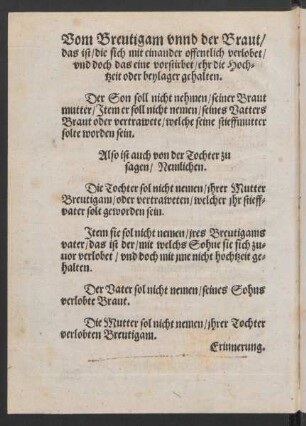 Vom Breutigam vnnd der Braut/
das ist/die sich mit einander offentlich verlobet/
vnd doch das eine vorstirbet/ehr die Hoch-
tzeit oder beylager gehalten.
Der Son soll nicht nehmen/seiner Braut
mutter/Item er soll nicht nemen/seines Vatters
Braut oder vertrawete/welche seine stieffmutter
solte worden sein.
Also ist auch von der Tochter zu
sagen/ Nemlichen.
Die Tochter sol nicht nemen/ihrer Mutter
Breutigam/oder vertraweten/welcher ihr stieff-
vater solt geworden sein.
Item sie sol nicht nemen/ires Breutigams
vater/das ist der/mit welchs Sohne sie sich zu-
uor verlobet/ vnd doch mit jme nicht hochtzeit ge-
halten.
Der Vater sol nicht nemen/seines Sohns
verlobte Braut.
Die Mutter sol nicht nemen/ihrer Tochter
verlobten Breutigam.
Erinnerung.